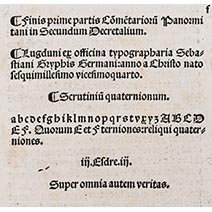 f
¶Finis prime partis Cōmētariorū Panormi
tani in Secundum Decretalium.
¶Lugduni ex officina typographaria Seba-
stiani Gryphii Germani: anno a Christo nato
sesquimillesimo vicesimoquarto.
¶Scrutiniū quaternionum.
abcdefghiklmnopqrstvxyzABCD
EF. Quorum E et F terniones: reliqui quater-
niones.
iij. Esdre. iij.
Super omnia autem veritas.